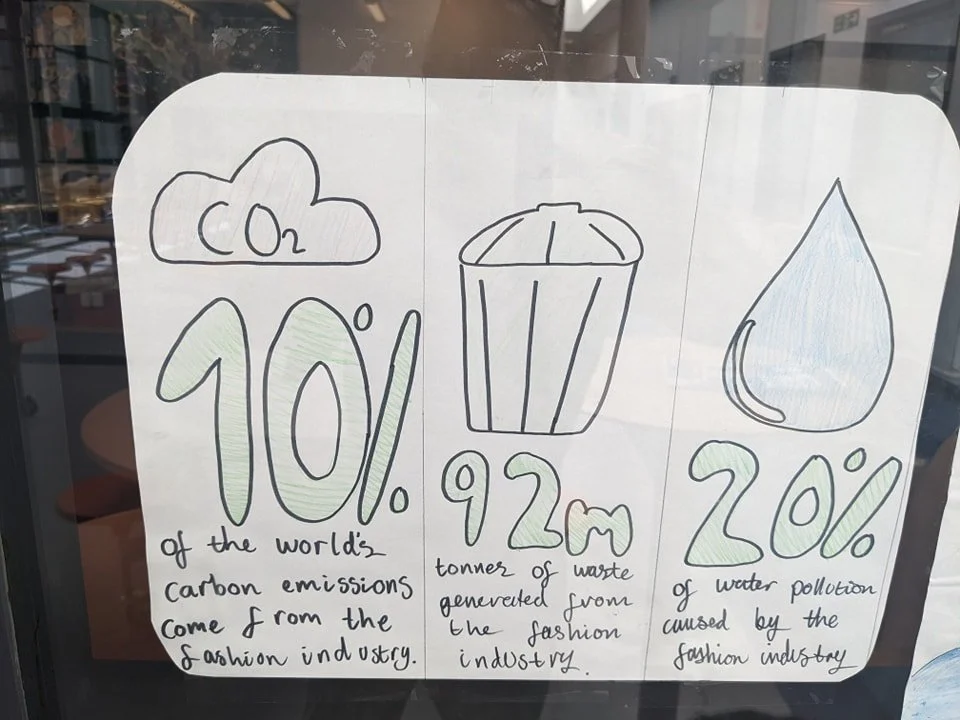 CO2
10%
of the world's
carbon emissions
come from the
fashion industry.
92m
tonnes of waste
generated from
the fashion
industry.
20%
of water pollution
caused by the
fashion industry